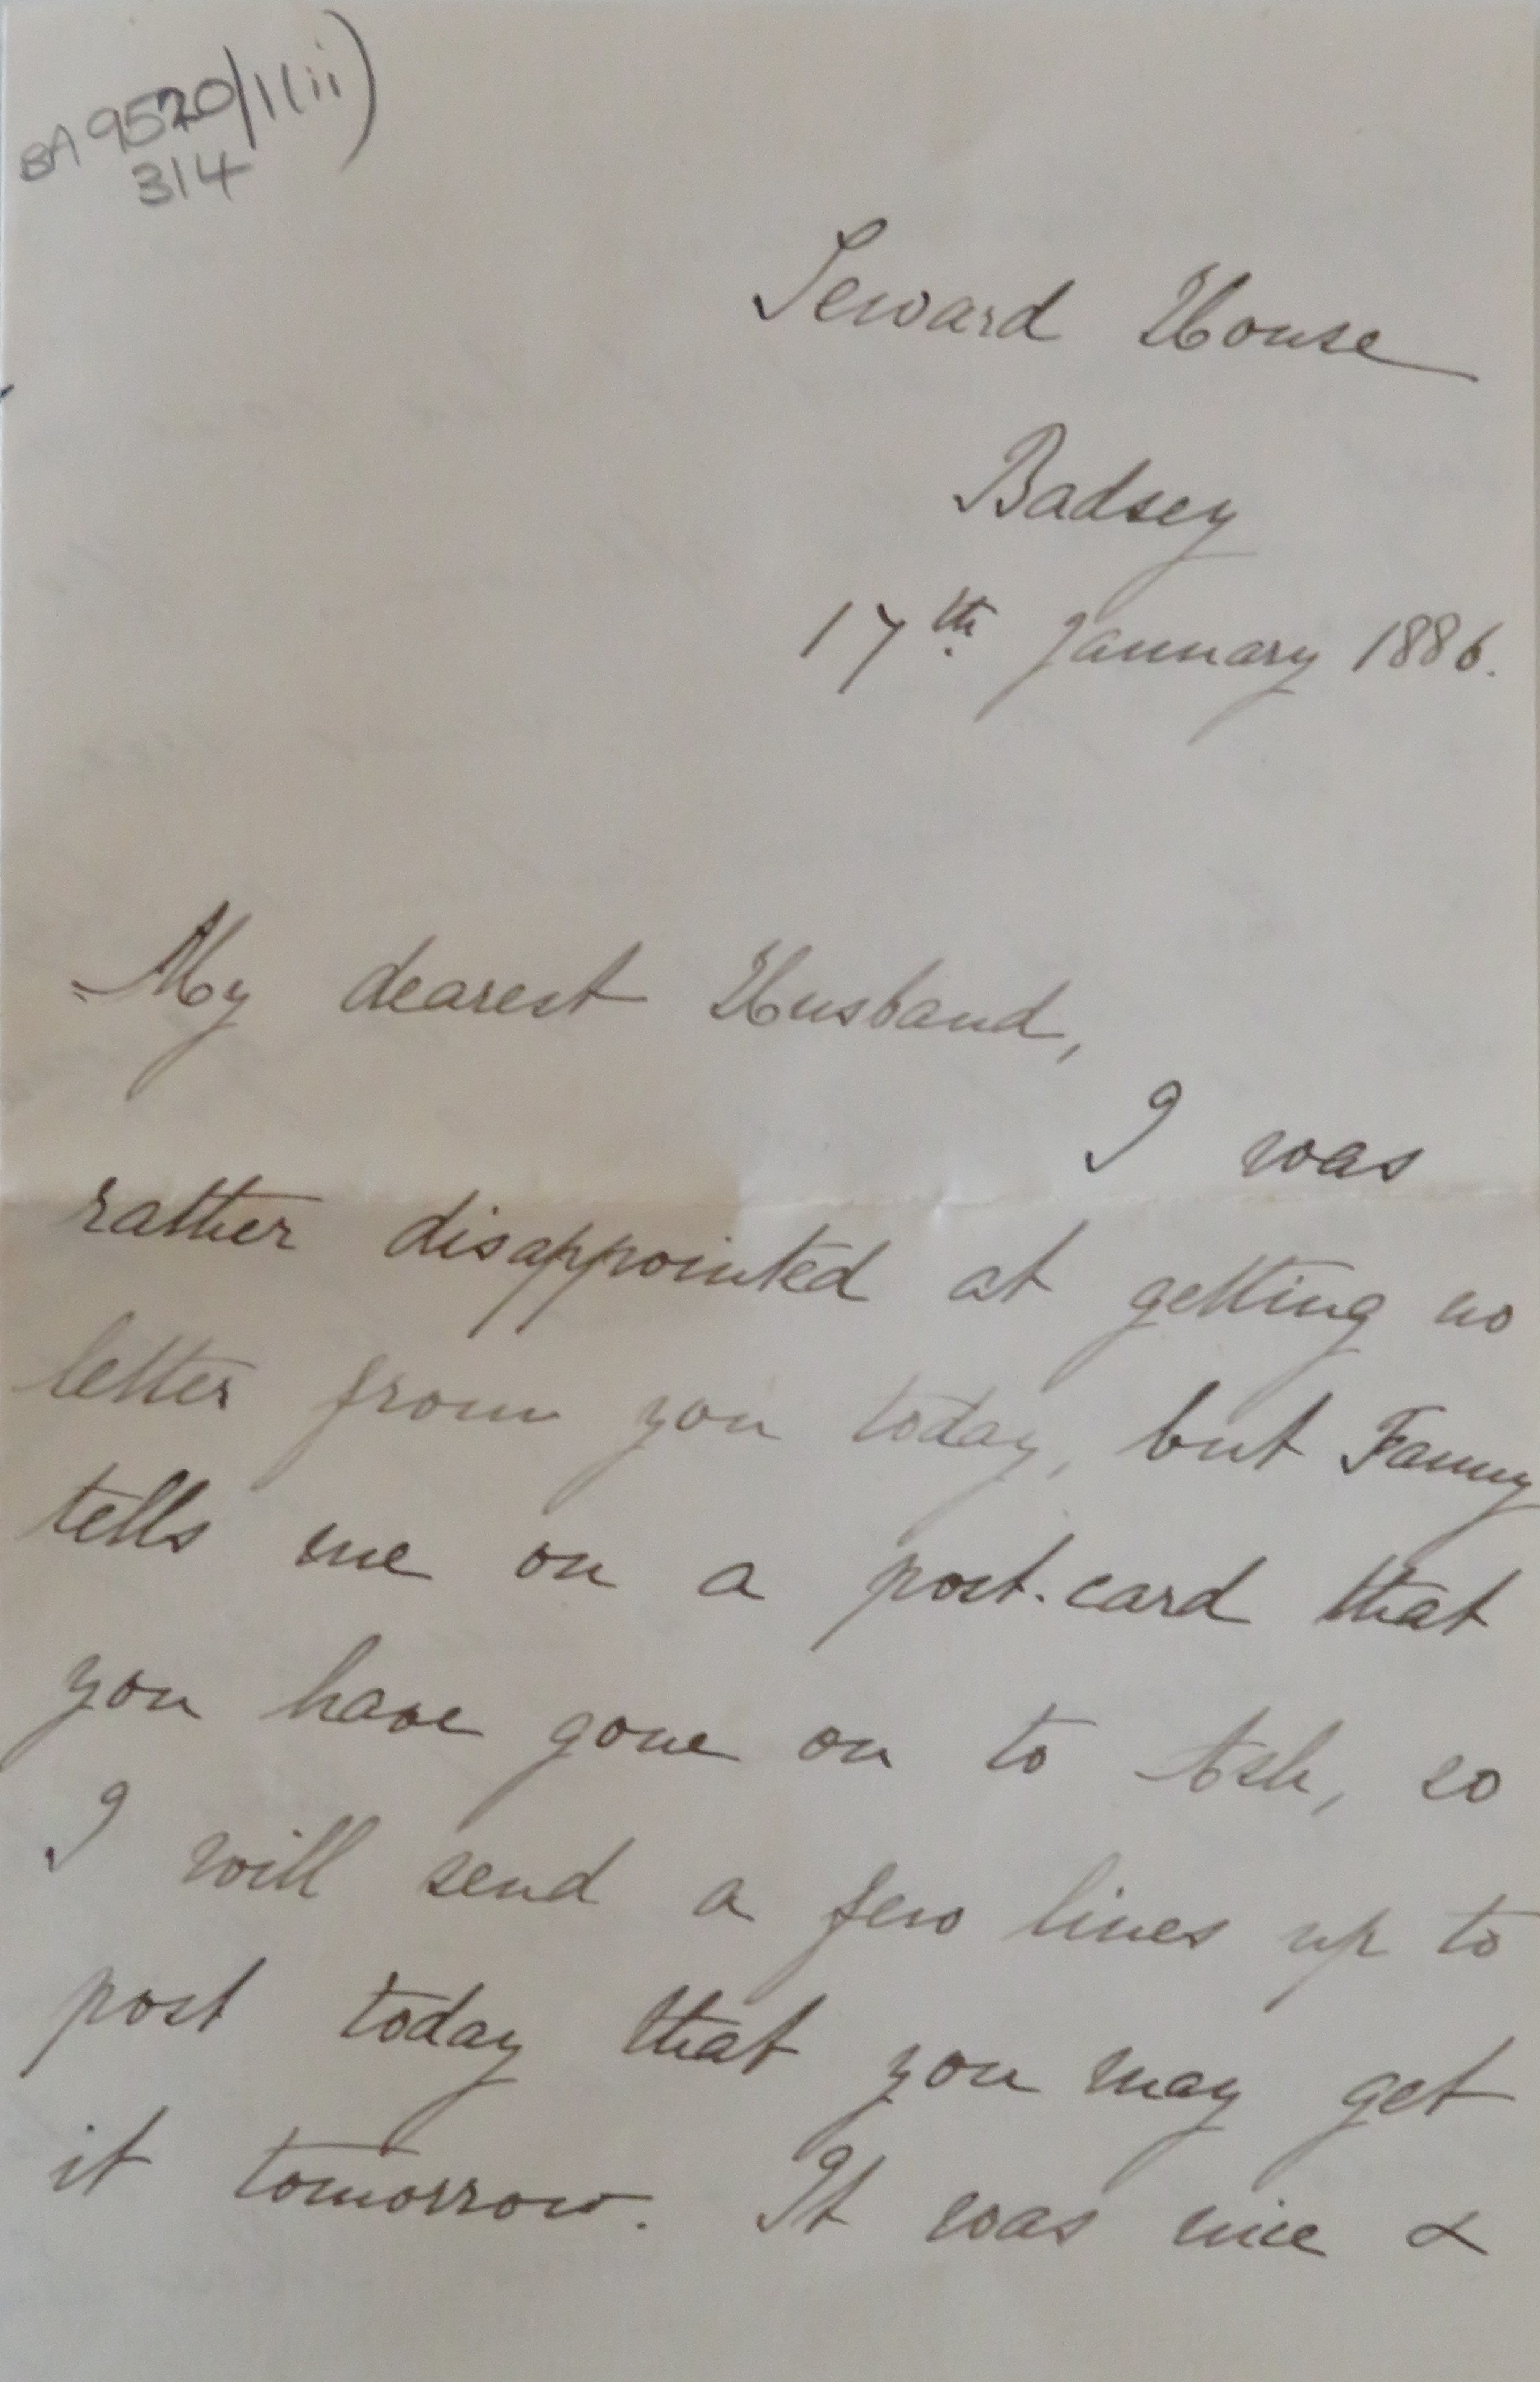 BA 9520/1(ii)
314
Seward House
Badsey
17th January 1886.
My dearest Husband,
I was
rather disappointed at getting no
letter from you today, but Fanny
tells me on a post-card that
you have gone on to Ash, so
I will send a few lines up to
post today that you may get
it tomorrow. It was nice &